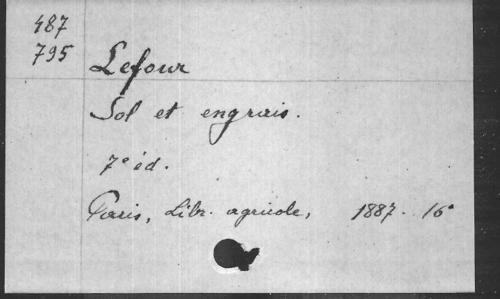 487
795
Lefour
Sol et engrais.
7e éd.
Paris, Libr. agricole, 1887. 16°